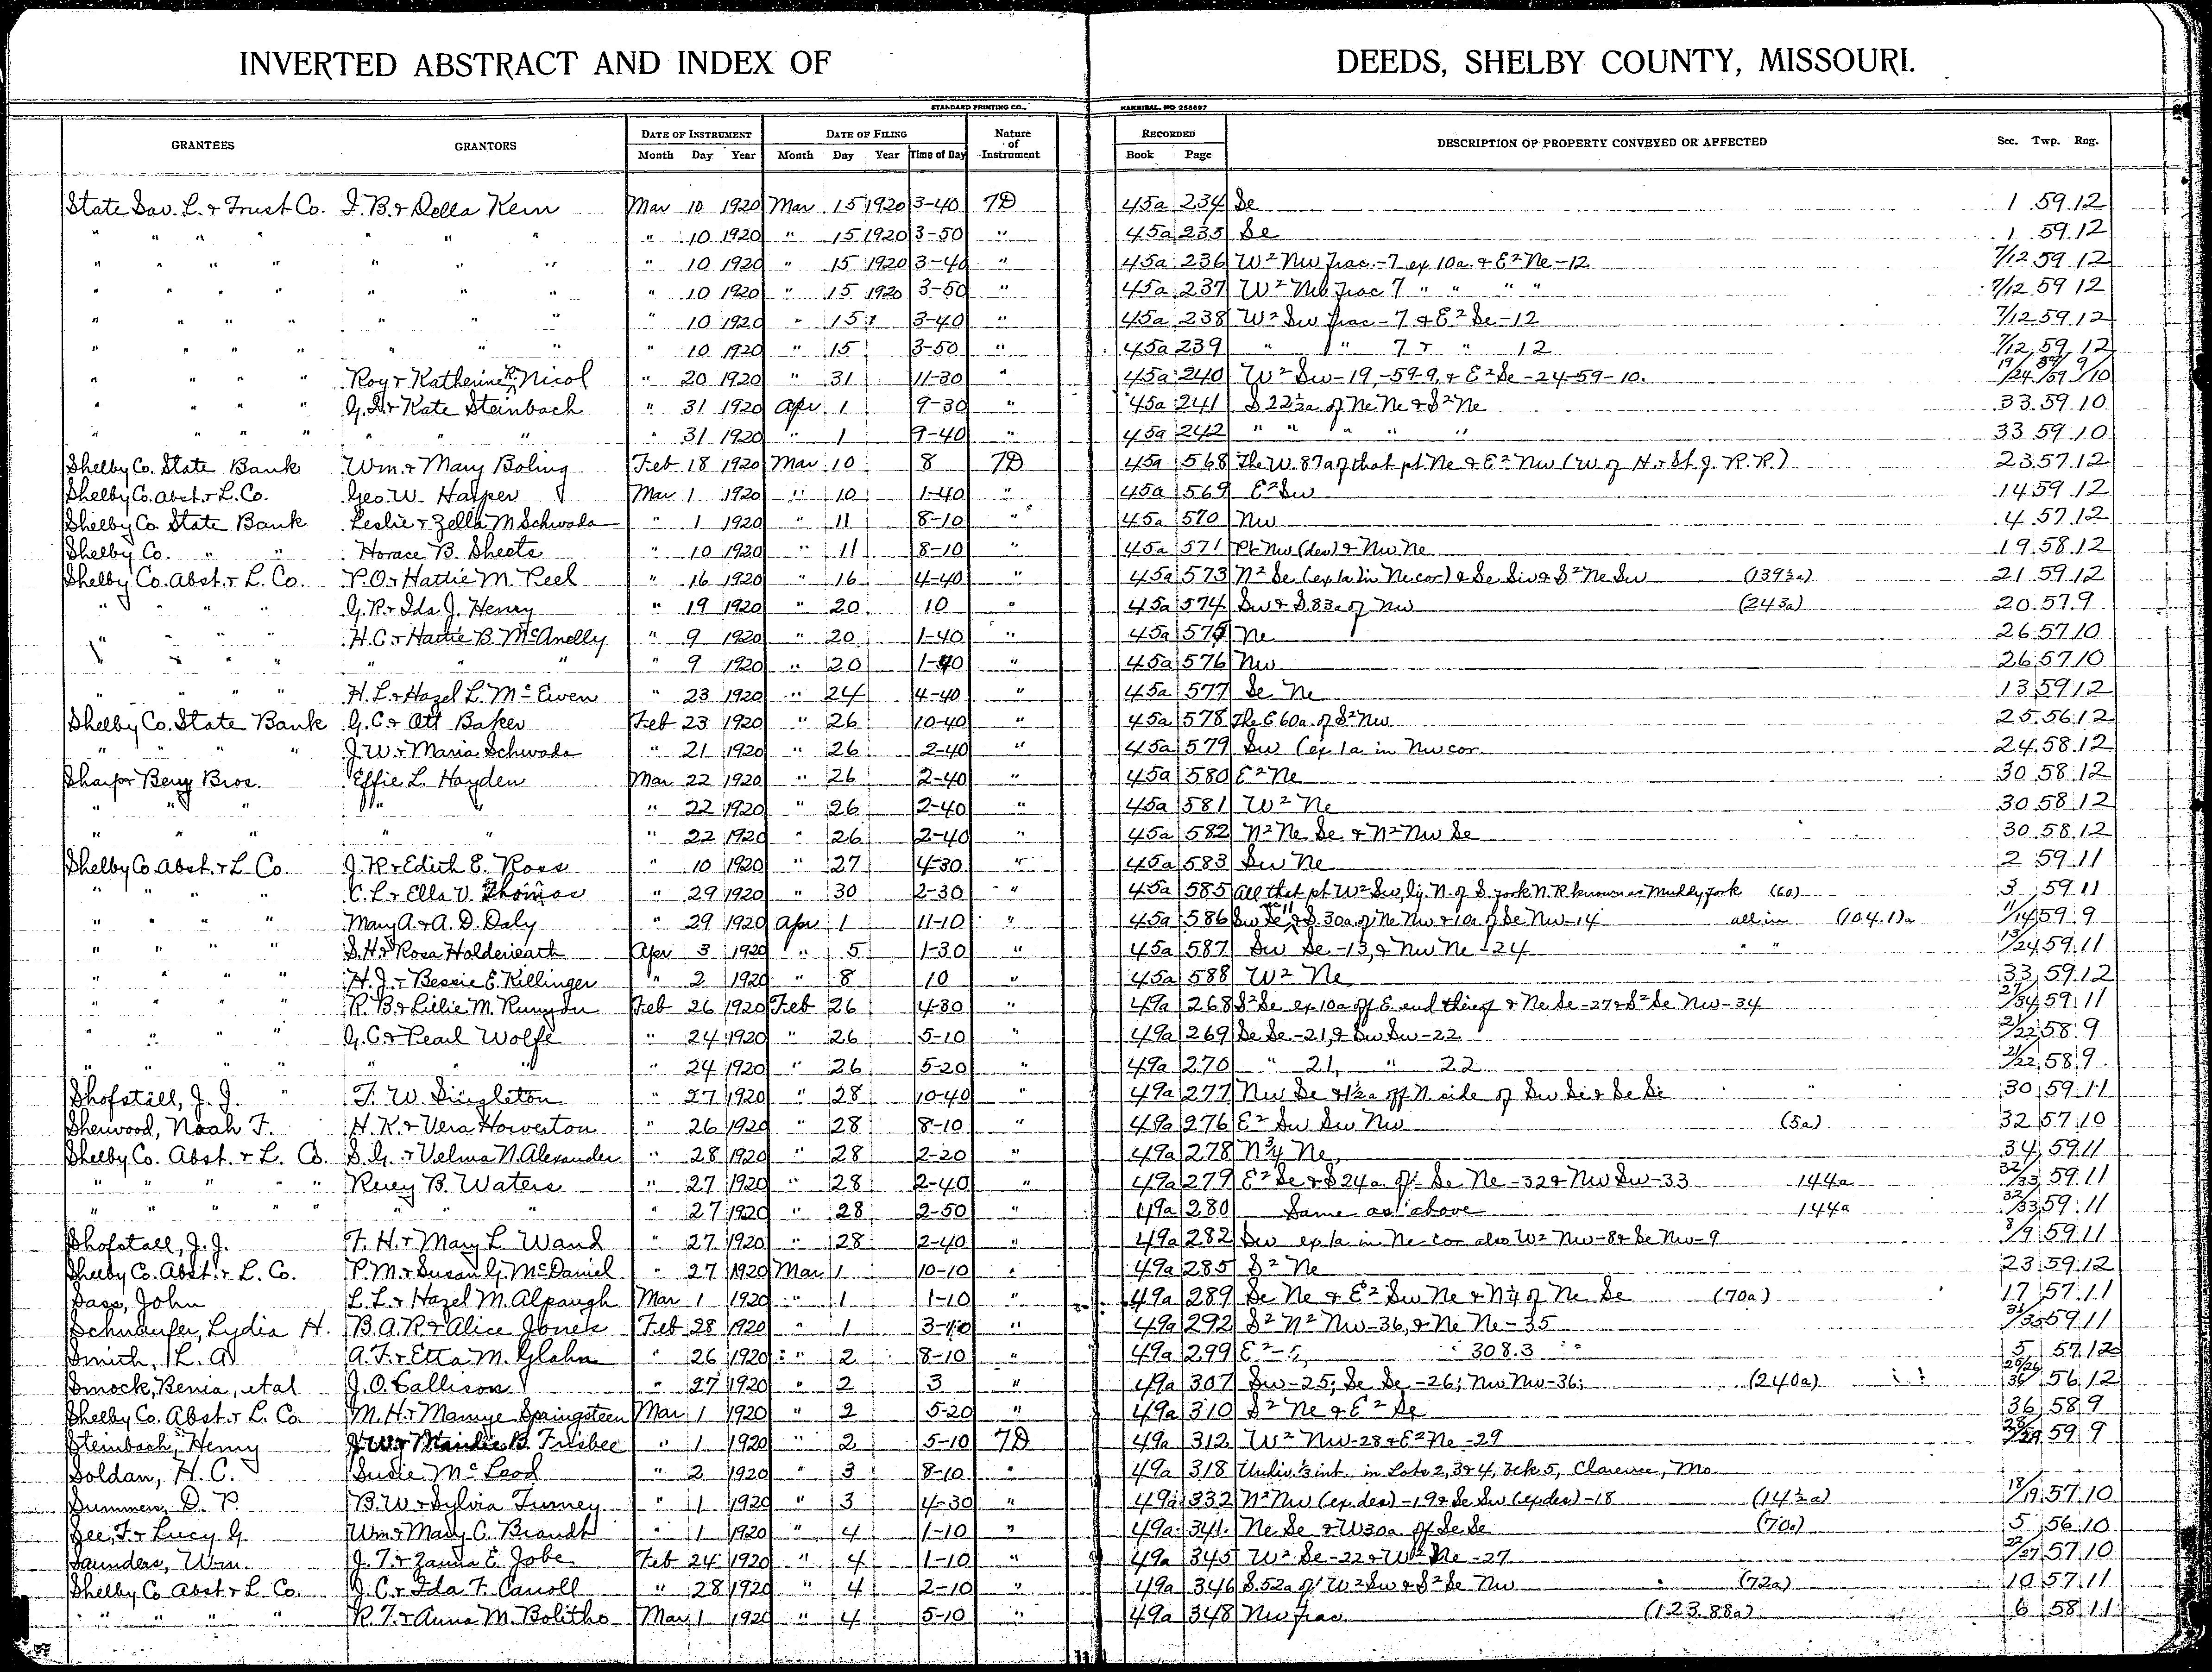 INVERTED ABSTRACT AND INDEX OF DEEDS, SHELBY COUNTY, MISSOURI.
STANDARD PRINTING CO., HANNIBAL, MO 256697
GRANTEES GRANTORS DATE OF INSTRUMENT DATE OF FILING Nature of Instrument RECORDED DESCRIPTION OF PROPERTY CONVEYED OR AFFECTED Sec. Twp. Rng.
Month Day Year Month Day Year Time of Day Book Page
State Sav. L. & Trust Co. J. B. & Della Kern Mar 10 1920 Mar 15 1920 3-40 TD 45a 234 Se 1 59 12
" " " " " " " " 10 1920 " 15 1920 3-50 " 45a 235 Se 1 59 12
" " " " " " " " 10 1920 " 15 1920 3-40 " 45a 236 W² Nw frac.-7 ex 10a & E² Ne-12 7/12 59 12
" " " " " " " " 10 1920 " 15 1920 3-50 " 45a 237 W² Nw frac 7 " " " " 7/12 59 12
" " " " " " " " 10 1920 " 15 3-40 " 45a 238 W² Sw frac-7 & E² Se-12 7/12 59 12
" " " " " " " " 10 1920 " 15 3-50 " 45a 239 " " 7 & " 12 7/12 59 12
" " " " Roy & Katherine R. Nicol " 20 1920 " 31 11-30 " 45a 240 W² Sw-19-59-9, & E² Se-24-59-10. 19/24 59/59 9/10
" " " " G. D. & Kate Steinbach " 31 1920 Apr 1 9-30 " 45a 241 S 22½a of Ne Ne & S² Ne 33 59 10
" " " " " " " " 31 1920 " 1 9-40 " 45a 242 " " " " " 33 59 10
Shelby Co. State Bank Wm. & Mary Boling Feb 18 1920 Mar 10 8 TD 45a 568 The W. 87a of that pt Ne & E² Nw (W of H. & St. J. R. R.) 23 57 12
Shelby Co. Abst. & L. Co. Geo. W. Harper Mar 1 1920 " 10 1-40 " 45a 569 E² Sw 14 59 12
Shelby Co. State Bank Leslie & Zella M Schwada " 1 1920 " 11 8-10 " 45a 570 Nw 4 57 12
Shelby Co. " " Horace B. Sheets " 10 1920 " 11 8-10 " 45a 571 Pt Nw (des) & Nw Ne 19 58 12
Shelby Co. Abst. & L. Co. P. O. & Hattie M. Peel " 16 1920 " 16 4-40 " 45a 573 N² Se (ex 1a in Ne cor) & Se Sw & S² Ne Sw (139½a) 21 59 12
" " " " G. R. & Ida J. Henry " 19 1920 " 20 10 " 45a 574 Sw & S. 83a of Nw (243a) 20 57 9
" " " " H. C. & Hattie B. McAnelly " 9 1920 " 20 1-40 " 45a 575 Ne 26 57 10
" " " " " " " " 9 1920 " 20 1-40 " 45a 576 Nw 26 57 10
" " " " H. L. & Hazel L. McEwen " 23 1920 " 24 4-40 " 45a 577 Se Ne 13 59 12
Shelby Co. State Bank G. C. & Ott Baker Feb 23 1920 " 26 10-40 " 45a 578 The E 60a. of S² Nw 25 56 12
" " " " J. W. & Maria Schwada " 21 1920 " 26 2-40 " 45a 579 Sw (ex 1a in Nw cor. 24 58 12
Sharp & Berry Bros. Effie L. Hayden Mar 22 1920 " 26 2-40 " 45a 580 E² Ne 30 58 12
" " " " " " 22 1920 " 26 2-40 " 45a 581 W² Ne 30 58 12
" " " " " " 22 1920 " 26 2-40 " 45a 582 N² Ne Se & N² Nw Se 30 58 12
Shelby Co. Abst. & L. Co. J. R. & Edith E. Ross " 10 1920 " 27 4-30 " 45a 583 Sw Ne 2 59 11
" " " " C. L. & Ella V. Thomas " 29 1920 " 30 2-30 " 45a 585 All that pt W² Sw, lij. N. of S. fork N. R. known as Muddy fork (60) 3 59 11
" " " " Mary A. & A. D. Daly " 29 1920 Apr 1 11-10 " 45a 586 Sw Se 11 & S. 30a of Ne Nw & 10a of Se Nw-14 all in (104.1)a 11/14 59 9
" " " " S. H. & Rosa Holderieath Apr 3 1920 " 5 1-30 " 45a 587 Sw Se-13, & Nw Ne-24 " " 13/24 59 11
" " " " H. J. & Bessie E. Killinger " 2 1920 " 8 10 " 45a 588 W² Ne 33 59 12
" " " " R. B. & Lillie M. Runyon Feb 26 1920 Feb 26 4-30 " 49a 268 S² Se ex 10a off E. end thereof & Ne Se-27 & S² Se Nw-34 27/34 59 11
" " " " G. C. & Pearl Wolfe " 24 1920 " 26 5-10 " 49a 269 Se Se-21, & Sw Sw-22 21/22 58 9
" " " " " " " " 24 1920 " 26 5-20 " 49a 270 " 21, " 22 21/22 58 9
Shofstall, J. J. T. W. Singleton " 27 1920 " 28 10-40 " 49a 277 Nw Se & 1½a off N. side of Sw Se & Se Se 30 59 11
Sherwood, Noah F. H. K. & Vera Howerton " 26 1920 " 28 8-10 " 49a 276 E² Sw Sw Nw (5a) 32 57 10
Shelby Co. Abst. & L. Co. S. G. & Velma N. Alexander " 28 1920 " 28 2-20 " 49a 278 N¾ Ne 34 59 11
" " " " " Reiey B. Waters " 27 1920 " 28 2-40 " 49a 279 E² Se & S 24a of Se Ne-32 & Nw Sw-33 144a 32/33 59 11
" " " " " " " " " 27 1920 " 28 2-50 " 49a 280 Same as above 144a 32/33 59 11
Shofstall, J. J. F. H. & Mary L. Wand " 27 1920 " 28 2-40 " 49a 282 Sw ex 1a in Ne cor also W² Nw-8 & Se Nw-9 8/9 59 11
Shelby Co. Abst. & L. Co. P. M. & Susan G. McDaniel " 27 1920 Mar 1 10-10 " 49a 285 S² Ne 23 59 12
Sass, John L. L. & Hazel M. Alpaugh Mar 1 1920 " 1 1-10 " 49a 289 Se Ne & E² Sw Ne & N¼ of Ne Se (70a) 17 57 11
Schnaufer, Lydia H. B. A. R. & Alice Jones Feb 28 1920 " 1 3-40 " 49a 292 S² N² Nw-36, & Ne Ne-35 /35 59 11
Smith, L. A. A. F. & Etta M. Glahn " 26 1920 " 2 8-10 " 49a 299 E²-5, 308.3 5 57 12
Smock, Benia, et al J. O. Callison " 27 1920 " 2 3 " 49a 307 Sw-25; Se Se-26; Nw Nw-36; (240a) 25/26/36 56 12
Shelby Co. Abst. & L. Co. M. H. & Mamye Springsteen Mar 1 1920 " 2 5-20 " 49a 310 S² Ne & E² Se 36 58 9
Steinbach, Henry J. W. & Maudie B. Frisbee " 1 1920 " 2 5-10 TD 49a 312 W² Nw-28 & E² Ne-29 28/29 59 9
Soldan, H. C. Susie McLeod " 2 1920 " 3 8-10 " 49a 318 Undiv ⅓ int. in Lots 2, 3 & 4, Bck 5, Clarence, Mo.
Summers, D. P. B. W. & Sylvia Turney " 1 1920 " 3 4-30 " 49a 332 N² Nw (ex des)-19 & Se Sw (ex des)-18 (14½a) 18/19 57 10
See, T. & Lucy G. Wm. & Mary C. Brandt " 1 1920 " 4 1-10 " 49a 341 Ne Se & W 30a of Se Se (70a) 5 56 10
Saunders, Wm. J. T. & Zanna E. Jobe Feb 24 1920 " 4 1-10 " 49a 345 W² Se-22 & W² Ne-27 22/27 57 10
Shelby Co Abst & L. Co. J. C. & Ida F. Carroll " 28 1920 " 4 2-10 " 49a 346 S. 52a of W² Sw & S² Se Nw (72a) 10 57 11
" " " " R. T. & Anna M. Bolitho Mar 1 1920 " 4 5-10 " 49a 348 Nw frac (123.88a) 6 58 11